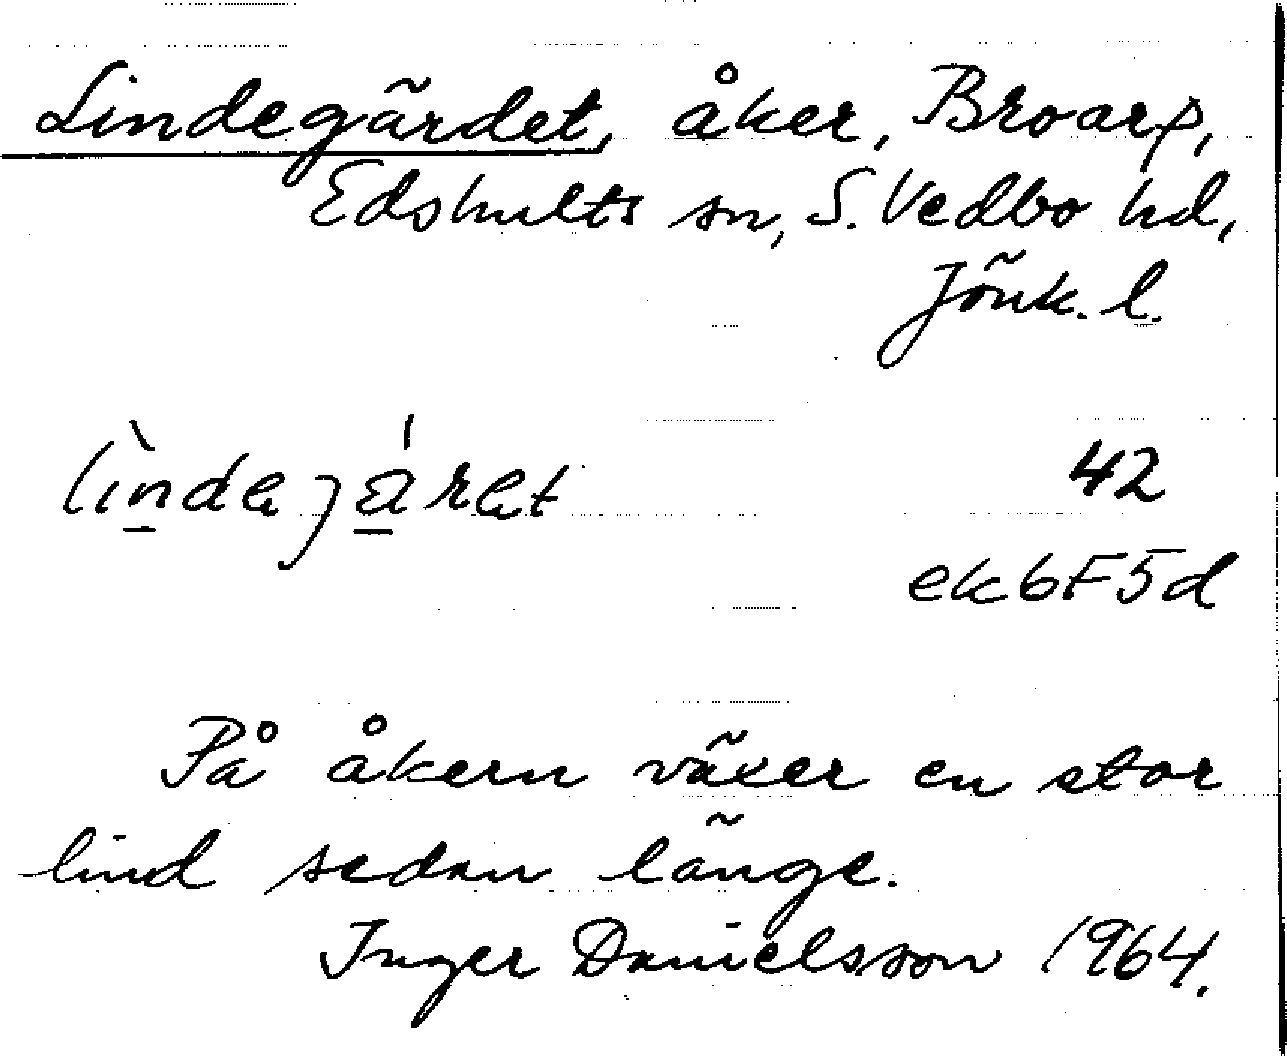 Lindegärdet, åker, Broarp,
Edshults sn, S. Vedbo hd,
Jönk. l.
42
ek 6F5d
På åkern växer en stor
lind sedan länge.
Inger Danielsson 1964.